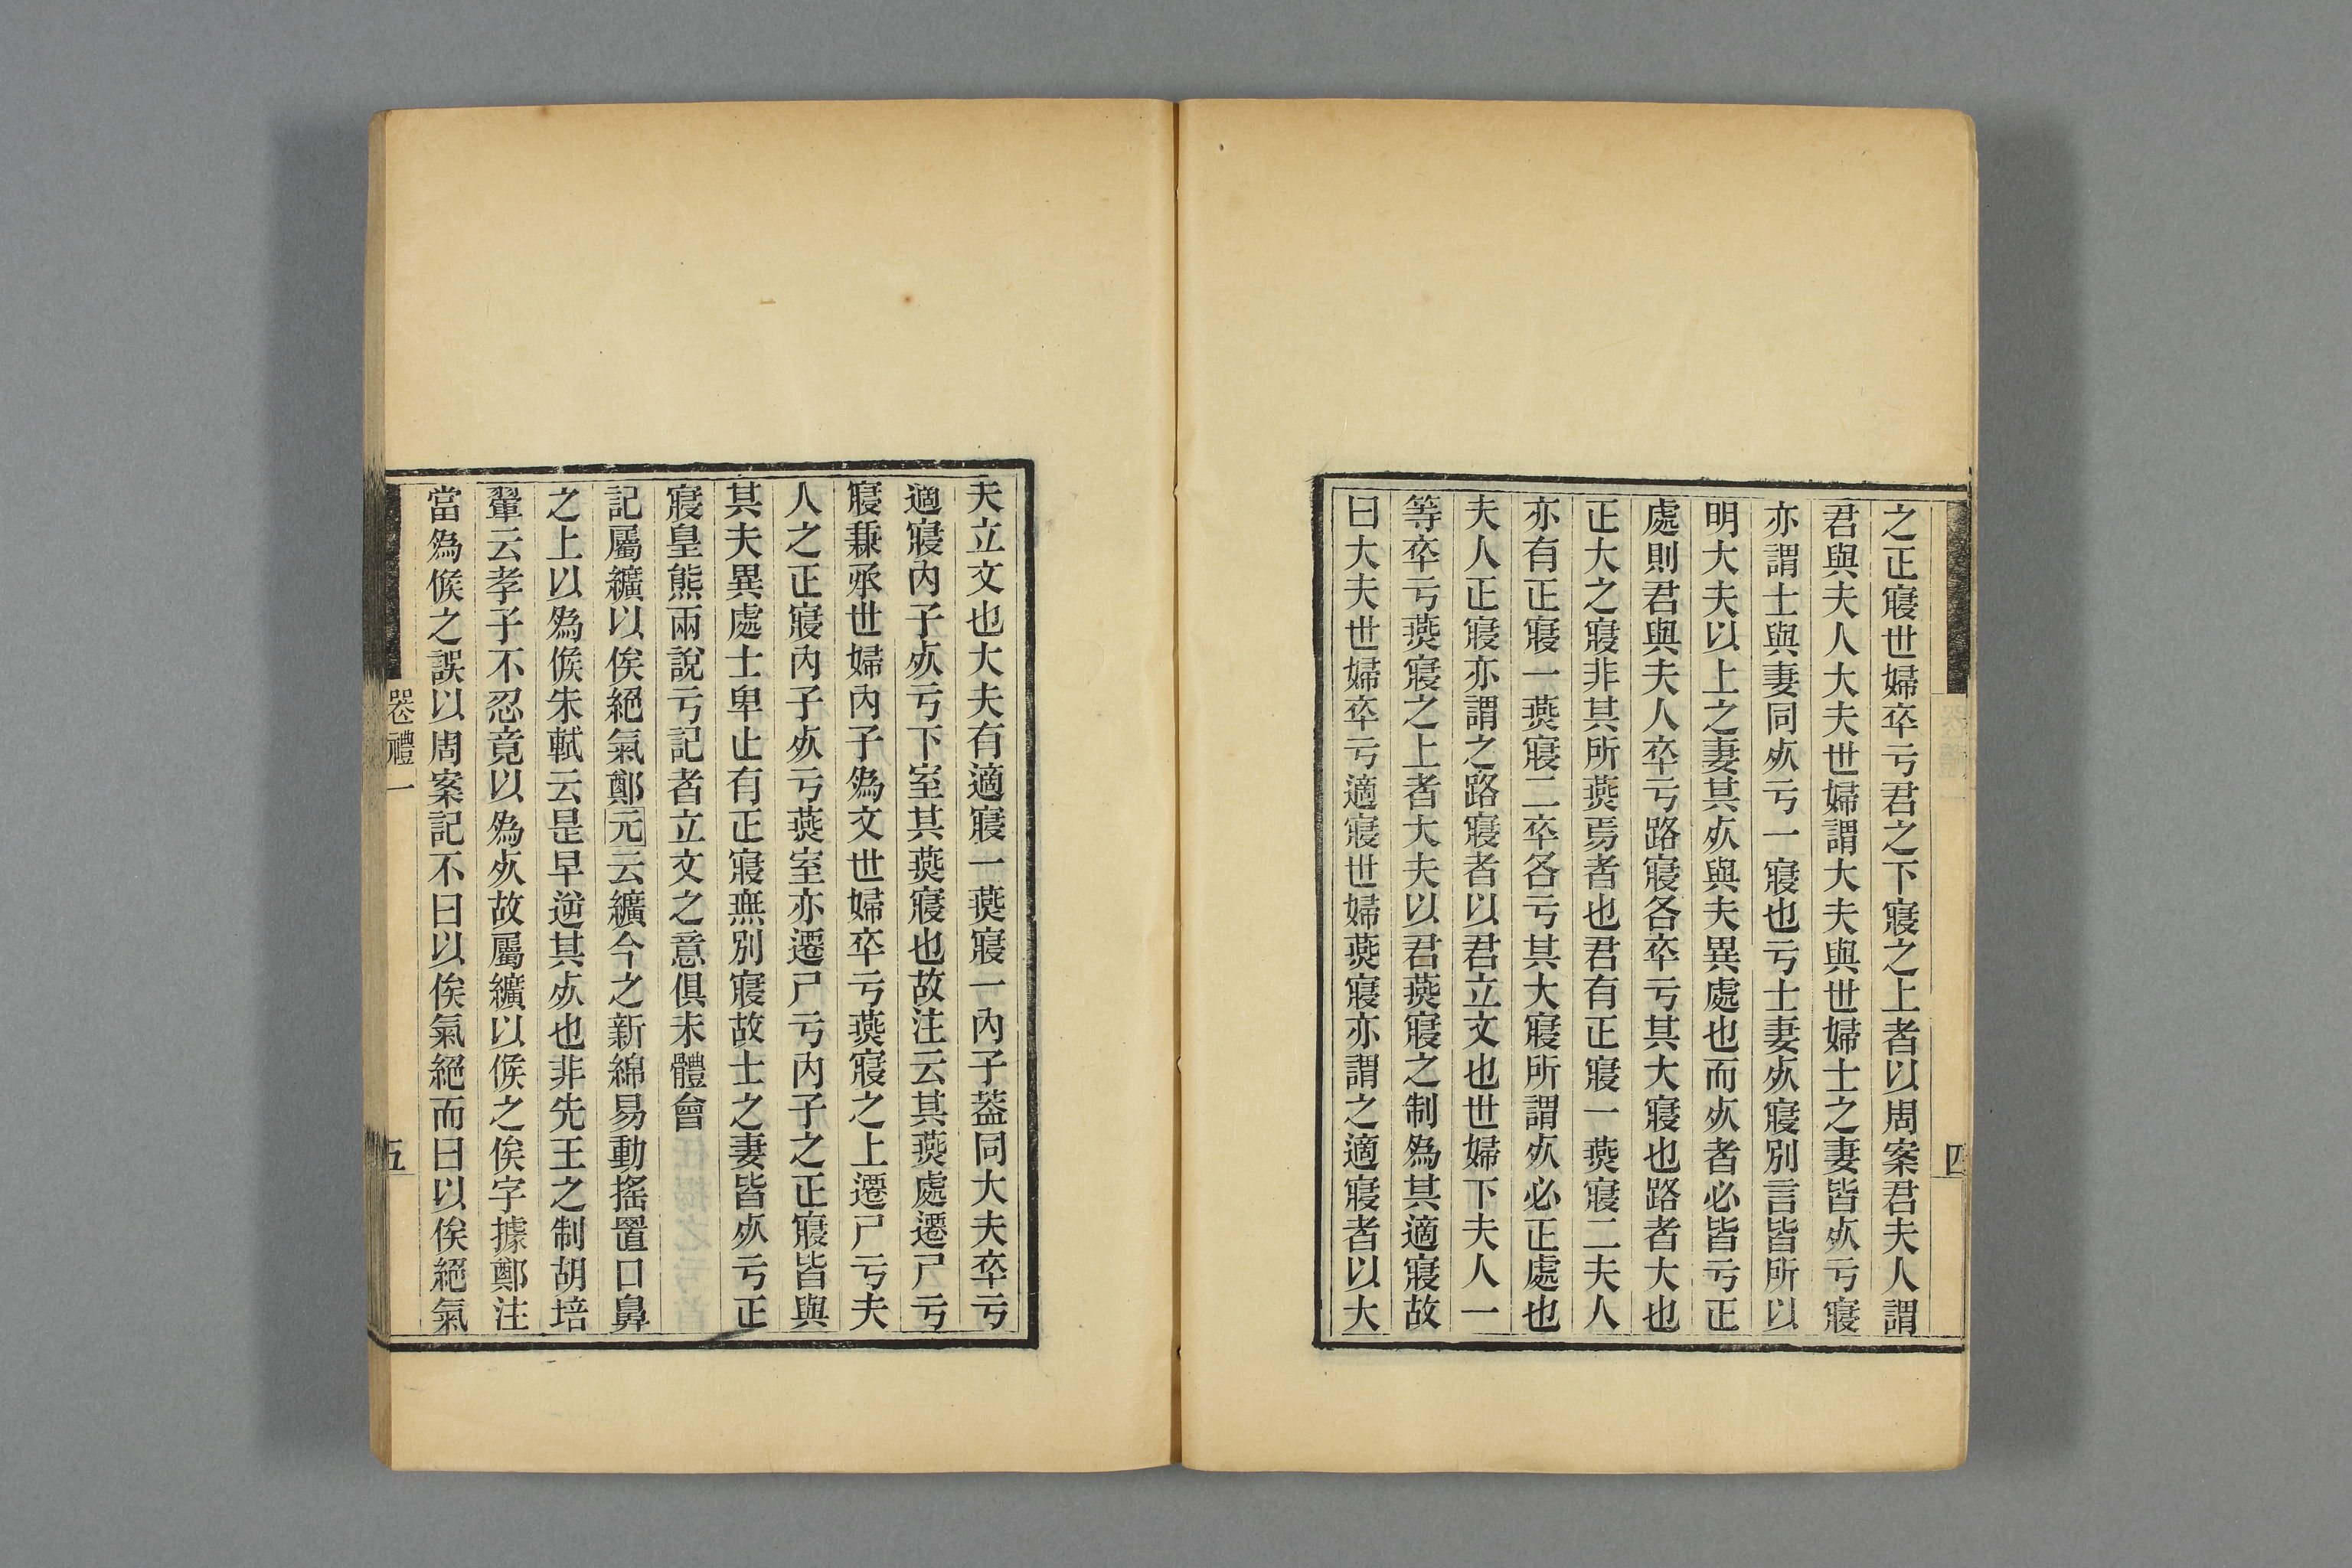 四
之正寢世婦卒亏君之下寢之上者以周案君夫人謂
君與夫人大夫世婦謂大夫與世婦士之妻皆𣦸亏寢
亦謂士與妻同𣦸亏一寢也亏士妻𣦸寢別言皆所以
明大夫以上之妻其𣦸與夫異處也而𣦸者必皆亏正
處則君與夫人卒亏路寢各卒亏其大寢也路者大也
正大之寢非其所燕焉者也君有正寢一燕寢二夫人
亦有正寢一燕寢二卒各亏其大寢所謂𣦸必正處也
夫人正寢亦謂之路寢者以君立文也世婦下夫人一
等卒亏燕寢之上者大夫以君燕寢之制爲其適寢故
曰大夫世婦卒亏適寢世婦燕寢亦謂之適寢者以大
夫立文也大夫有適寢一燕寢一內子葢同大夫卒亏
適寢內子𣦸亏下室其燕寢也故注云其燕處遷尸亏
寢兼承世婦內子爲文世婦卒亏燕寢之上遷尸亏夫
人之正寢內子𣦸亏燕室亦遷尸亏內子之正寢皆與
其夫異處士卑止有正寢無別寢故士之妻皆𣦸亏正
寢皇熊兩說亏記者立文之意俱未體會
記屬纊以俟絕氣鄭元云纊今之新綿易動搖置口鼻
之上以爲候朱軾云是早逆其𣦸也非先王之制胡培
翬云孝子不忍竟以爲𣦸故屬纊以候之俟字據鄭注
當爲候之誤以周案記不曰以俟氣絕而曰以俟絕氣
喪禮一
五